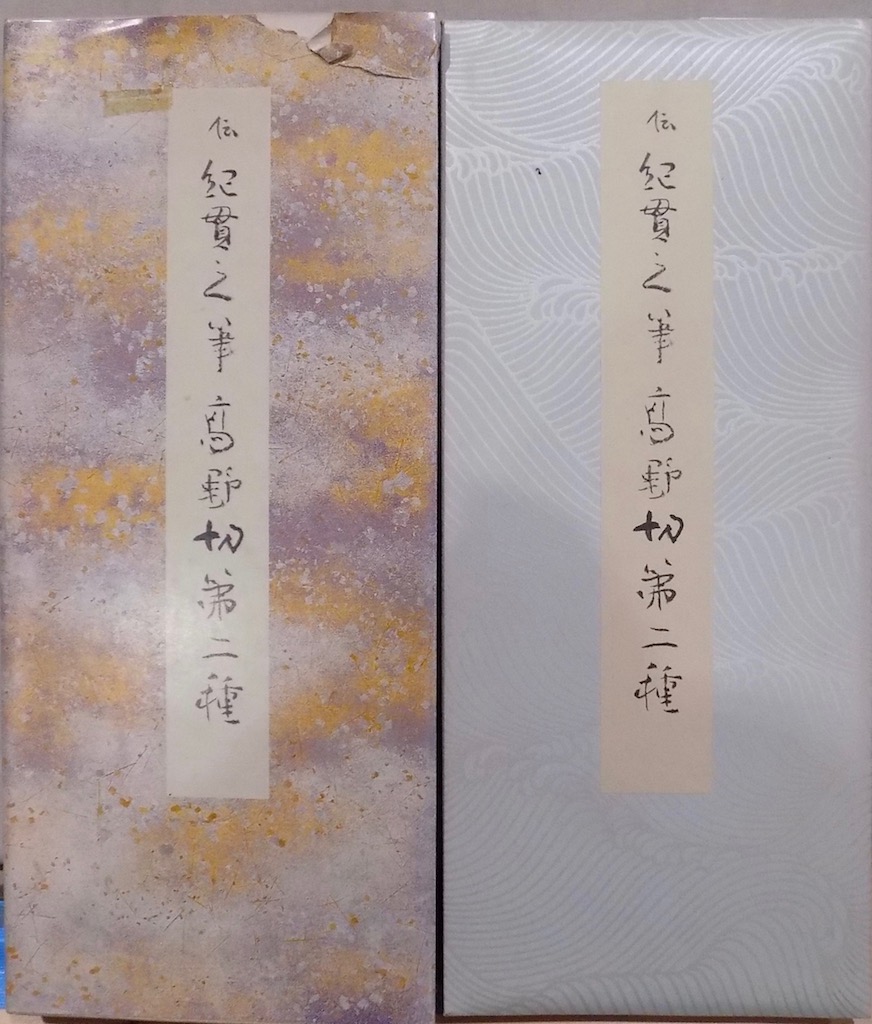 伝 紀貫之筆 高野切第二種
伝 紀貫之筆 高野切第二種